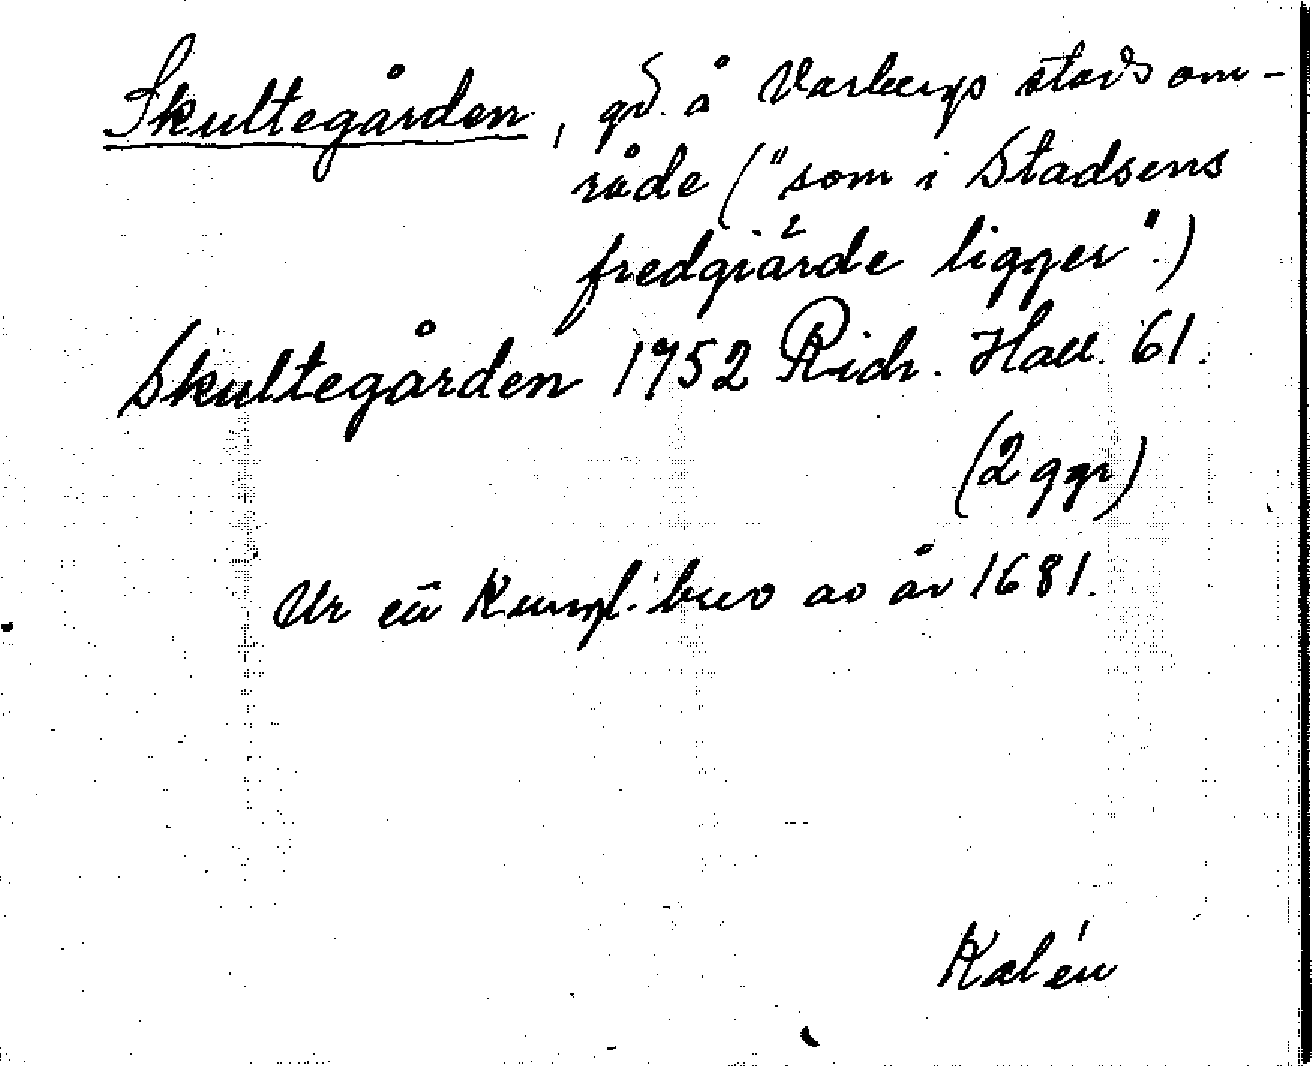 Skultegården, gd. å Varbergs stads om-
råde ("som i Stadsens
fredgiärde ligger".)
Skultegården 1752 Rich. Hall. 61.
(2 ggr)
Ur ett Kungl. brev av år 1681.
Kalén